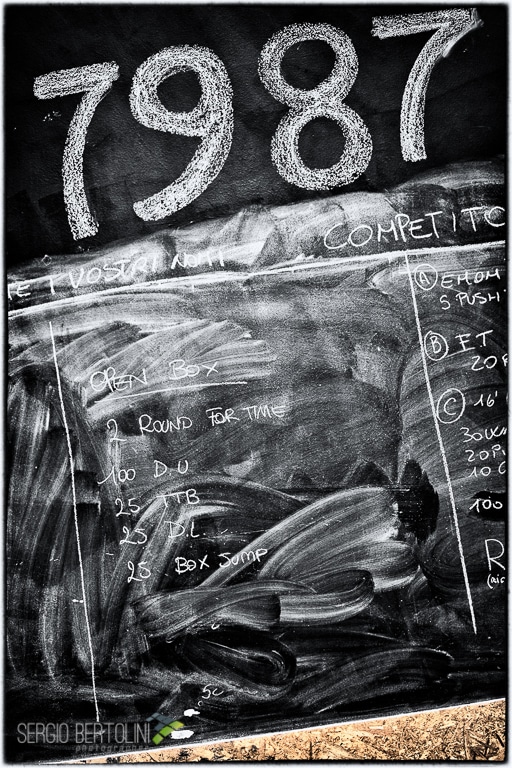 7987
COMPETITO
E I VOSTRI
OPEN BOX
2 ROUND FOR TIME
100 D.U
25 TTB
25 D.L.
25 BOX JUMP
A EMOM
5 PUSH
B F.T
20
C 16'
20 P
10 C
100
R
SERGIO BERTOLINI
photographer